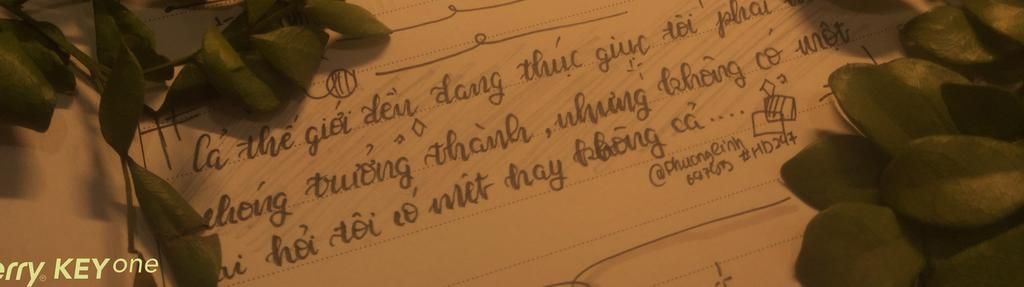 Cả thế giới đều đang thúc giục tôi phải
chóng trưởng thành, nhưng không có một
ai hỏi tôi có mệt hay không cả....
@phuonglinh
097693 #HD247
erry KEYone